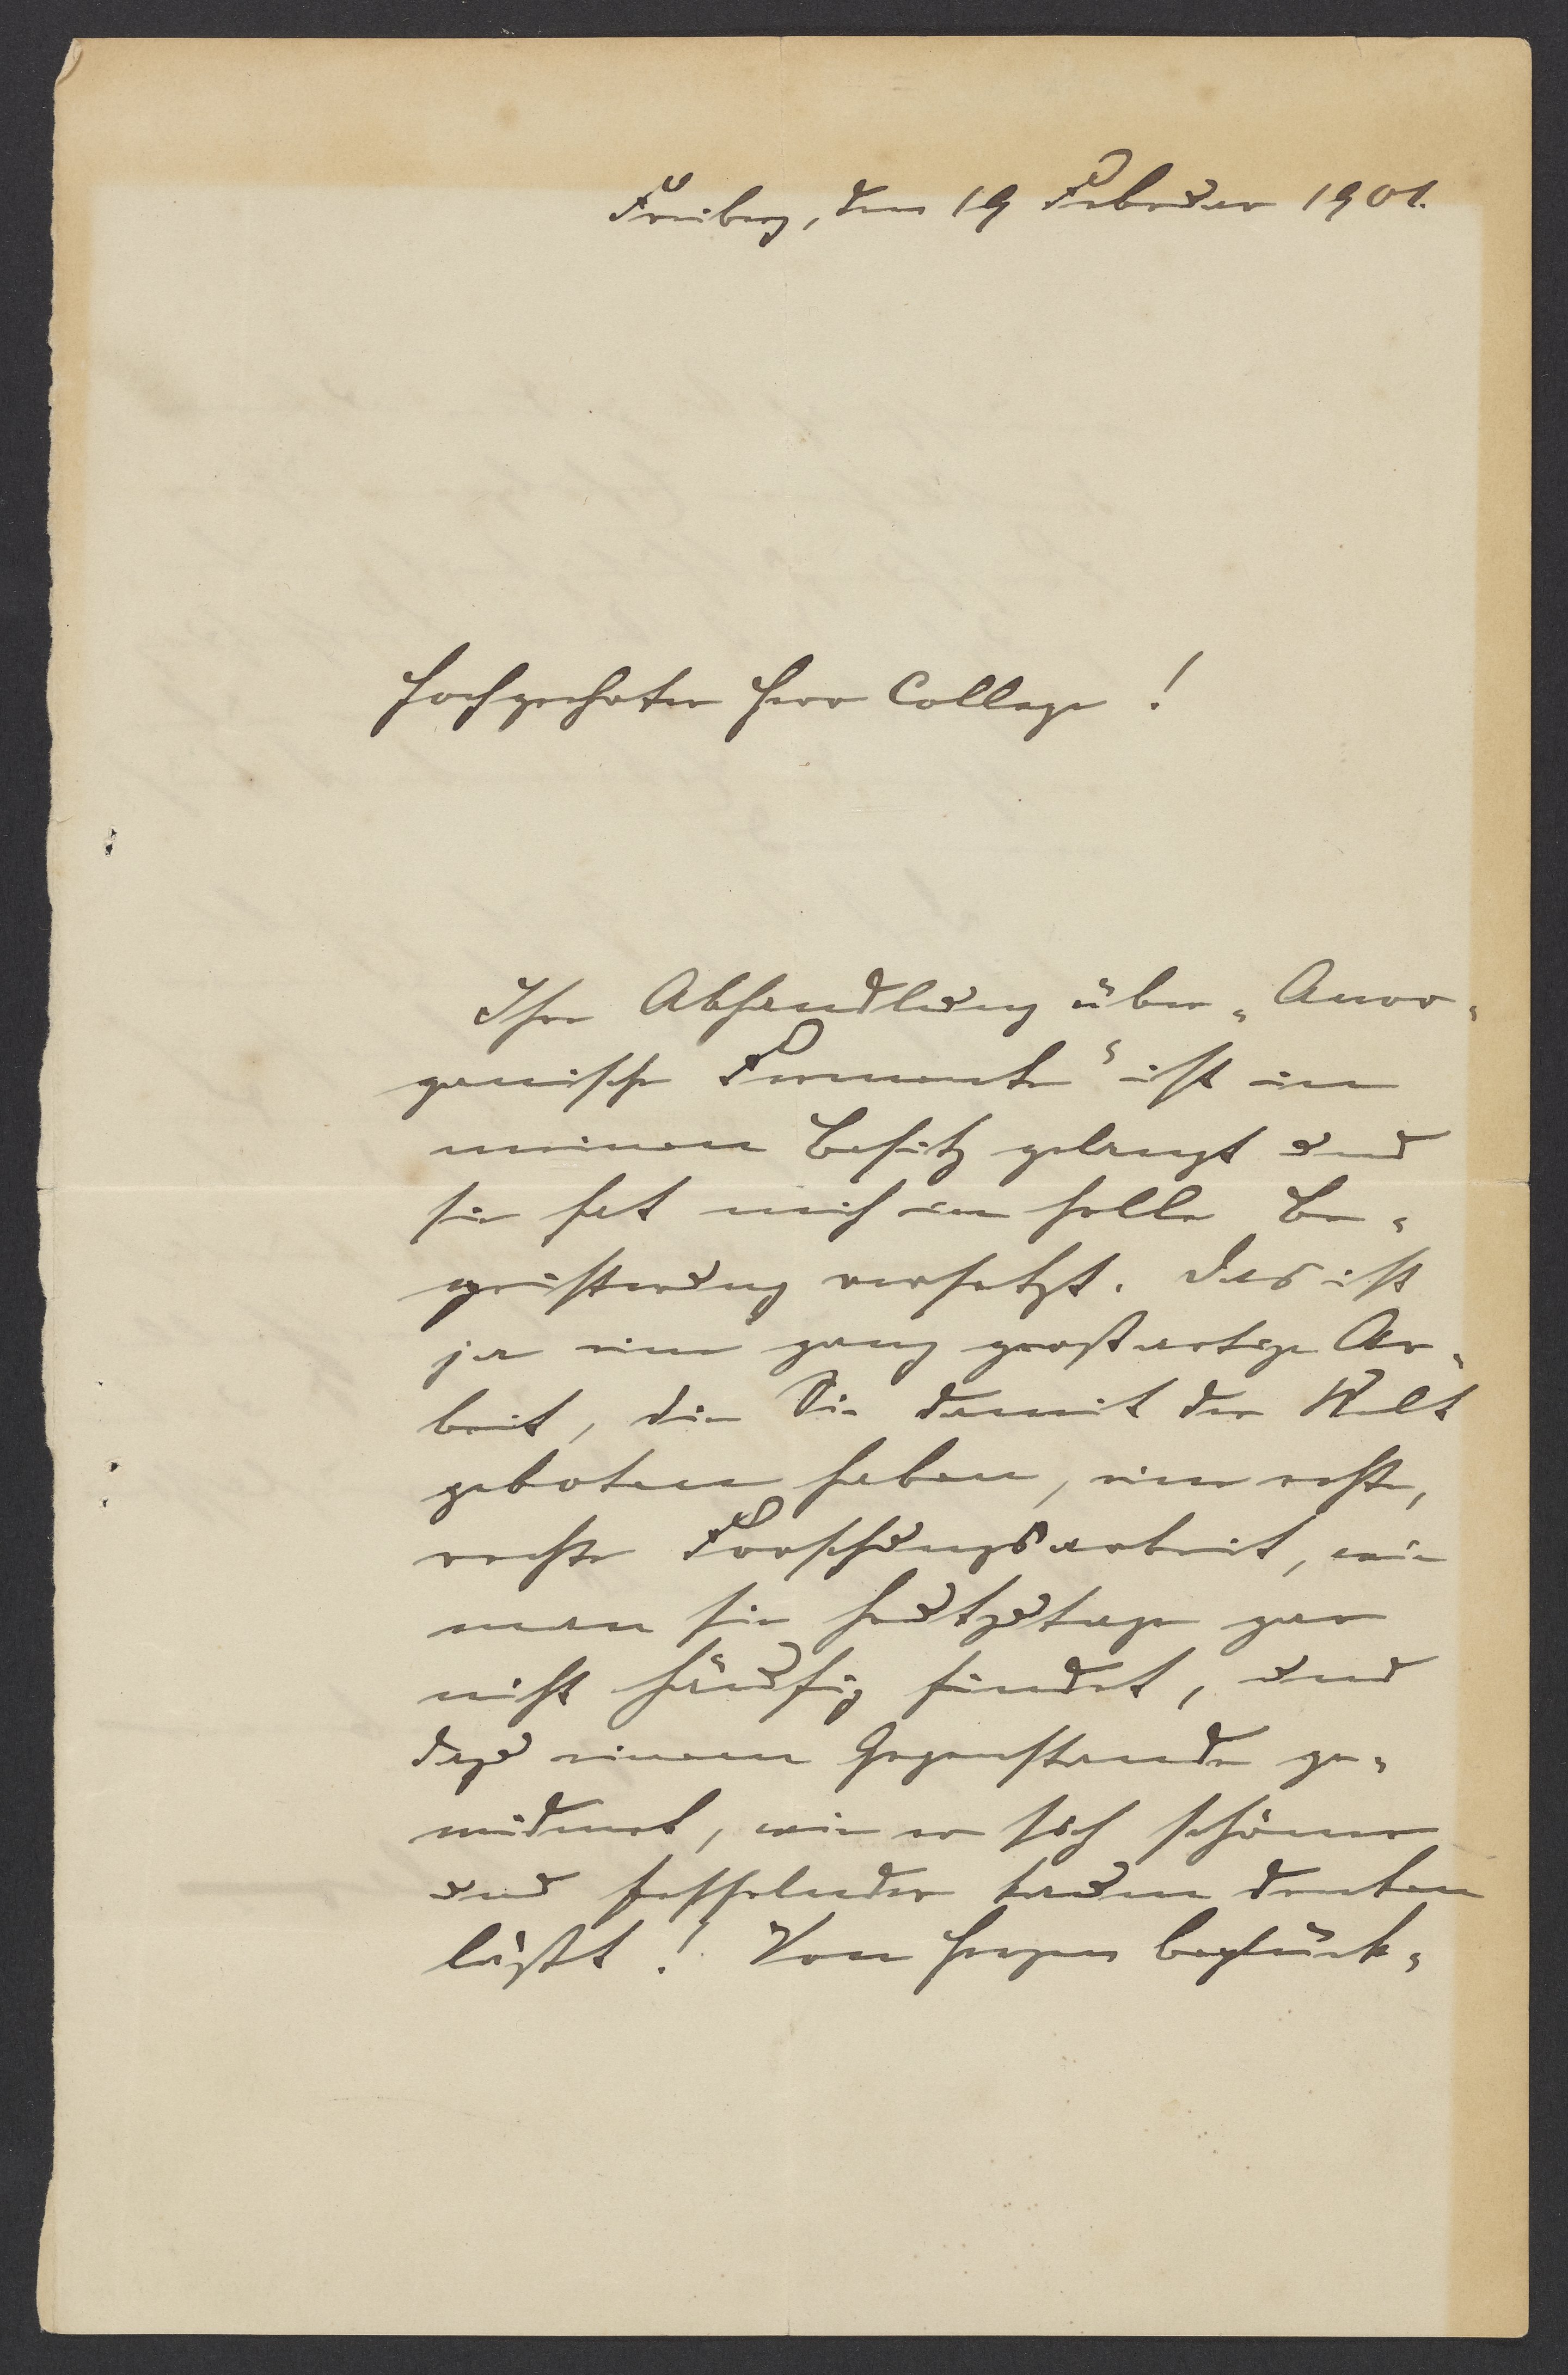 Freiberg, den 19 Februar 1901.
Hochgeehrter Herr College !
Ihre Abhandlung über „Anor-
ganische Fermente“ ist in
meinen Besitz gelangt und
sie hat mich in helle Be-
geisterung versetzt. Das ist
ja eine ganz großartige Ar-
beit, die Sie damit der Welt
geboten haben, eine echte,
rechte Forschungsarbeit, wie
man sie heutzutage gar
nicht häufig findet, und
dazu einem Gegenstande ge-
widmet, wie er sich schöner
und fesselnder kaum denken
läßt ! Von Herzen beglück-